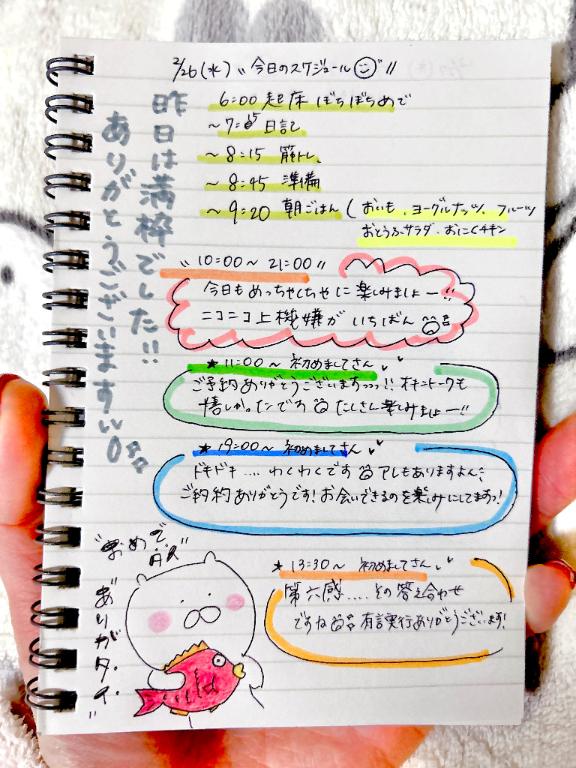 2/26(水)"今日のスケジュール"!!
昨日は満枠でした!!
ありがとうございますっ!!
6:00 起床 ぼちぼちめで
~7:15 日記
~8:15 筋トレ
~8:45 準備
~9:20 朝ごはん (おいも、ヨーグルナッツ、フルーツ
おとうふサラダ、おにくチキン
"10:00~21:00"
今日もめっちゃくちゃに楽しみましょー!!
ニコニコ上機嫌がいちばん
★11:00~ 初めましてさん
ご予約ありがとうございますっっっ!! オキニトークも
嬉しかったです たくさん楽しみましょー!!
★19:00~ 初めましてさん
ドキドキ....わくわくです アレもありますよん
ご予約ありがとうです! お会いできるのを楽しみにしてますっ!
★13:30~ 初めましてさん
第六感....その答え合わせ
ですね 有言実行ありがとうございます!
"おめで沢"
"ありがタイ"